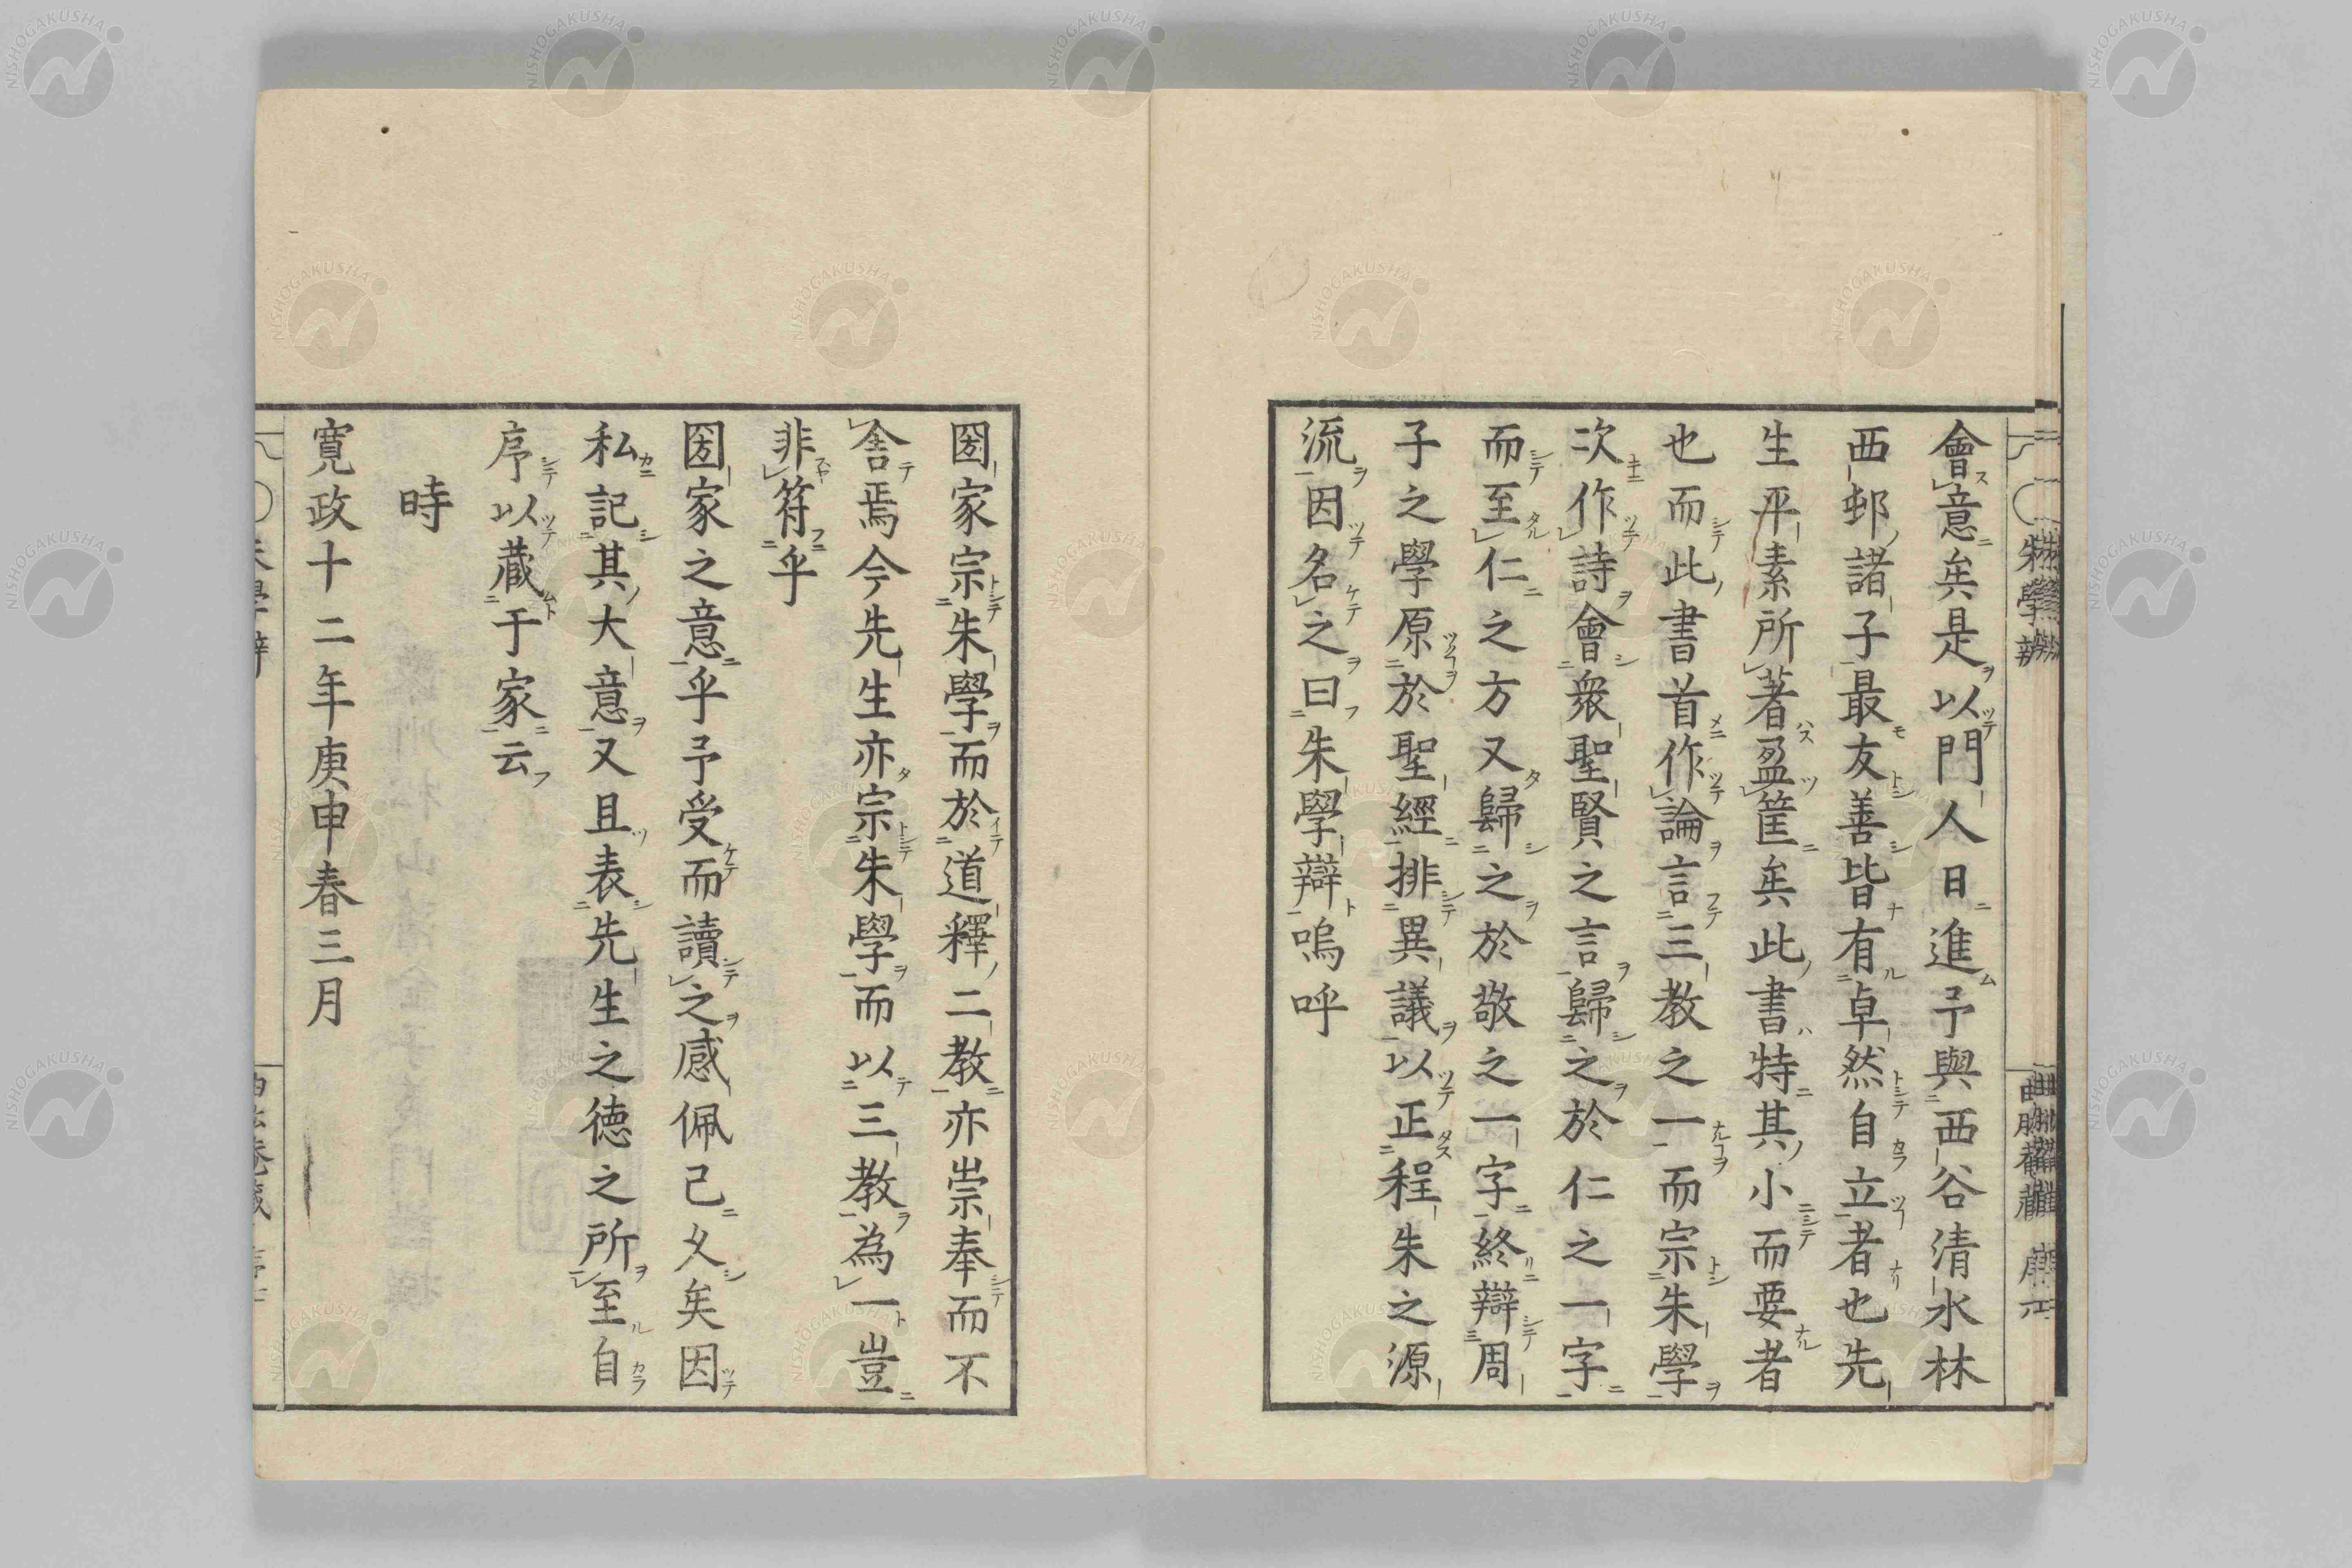 會意矣是以門人日進予與西谷清水林
西邨諸子最友善皆有卓然自立者也先
生平素所著盈筐矣此書特其小而要者
也而此書首作論言三教之一而宗朱學
次作詩會衆聖賢之言歸之於仁之一字
而至仁之方又歸之於敬之一字終辯周
子之學原於聖經排異議以正程朱之源
流因名之曰朱學辯嗚呼
圀家宗朱學而於道釋二教亦崇奉而不
舍焉今先生亦宗朱學而以三教為一豈
非符乎
圀家之意乎予受而讀之感佩己久矣因
私記其大意又且表先生之德之所至自
序以藏于家云
時
寛政十二年庚申春三月
朱學辯
NISHOGAKUSHA